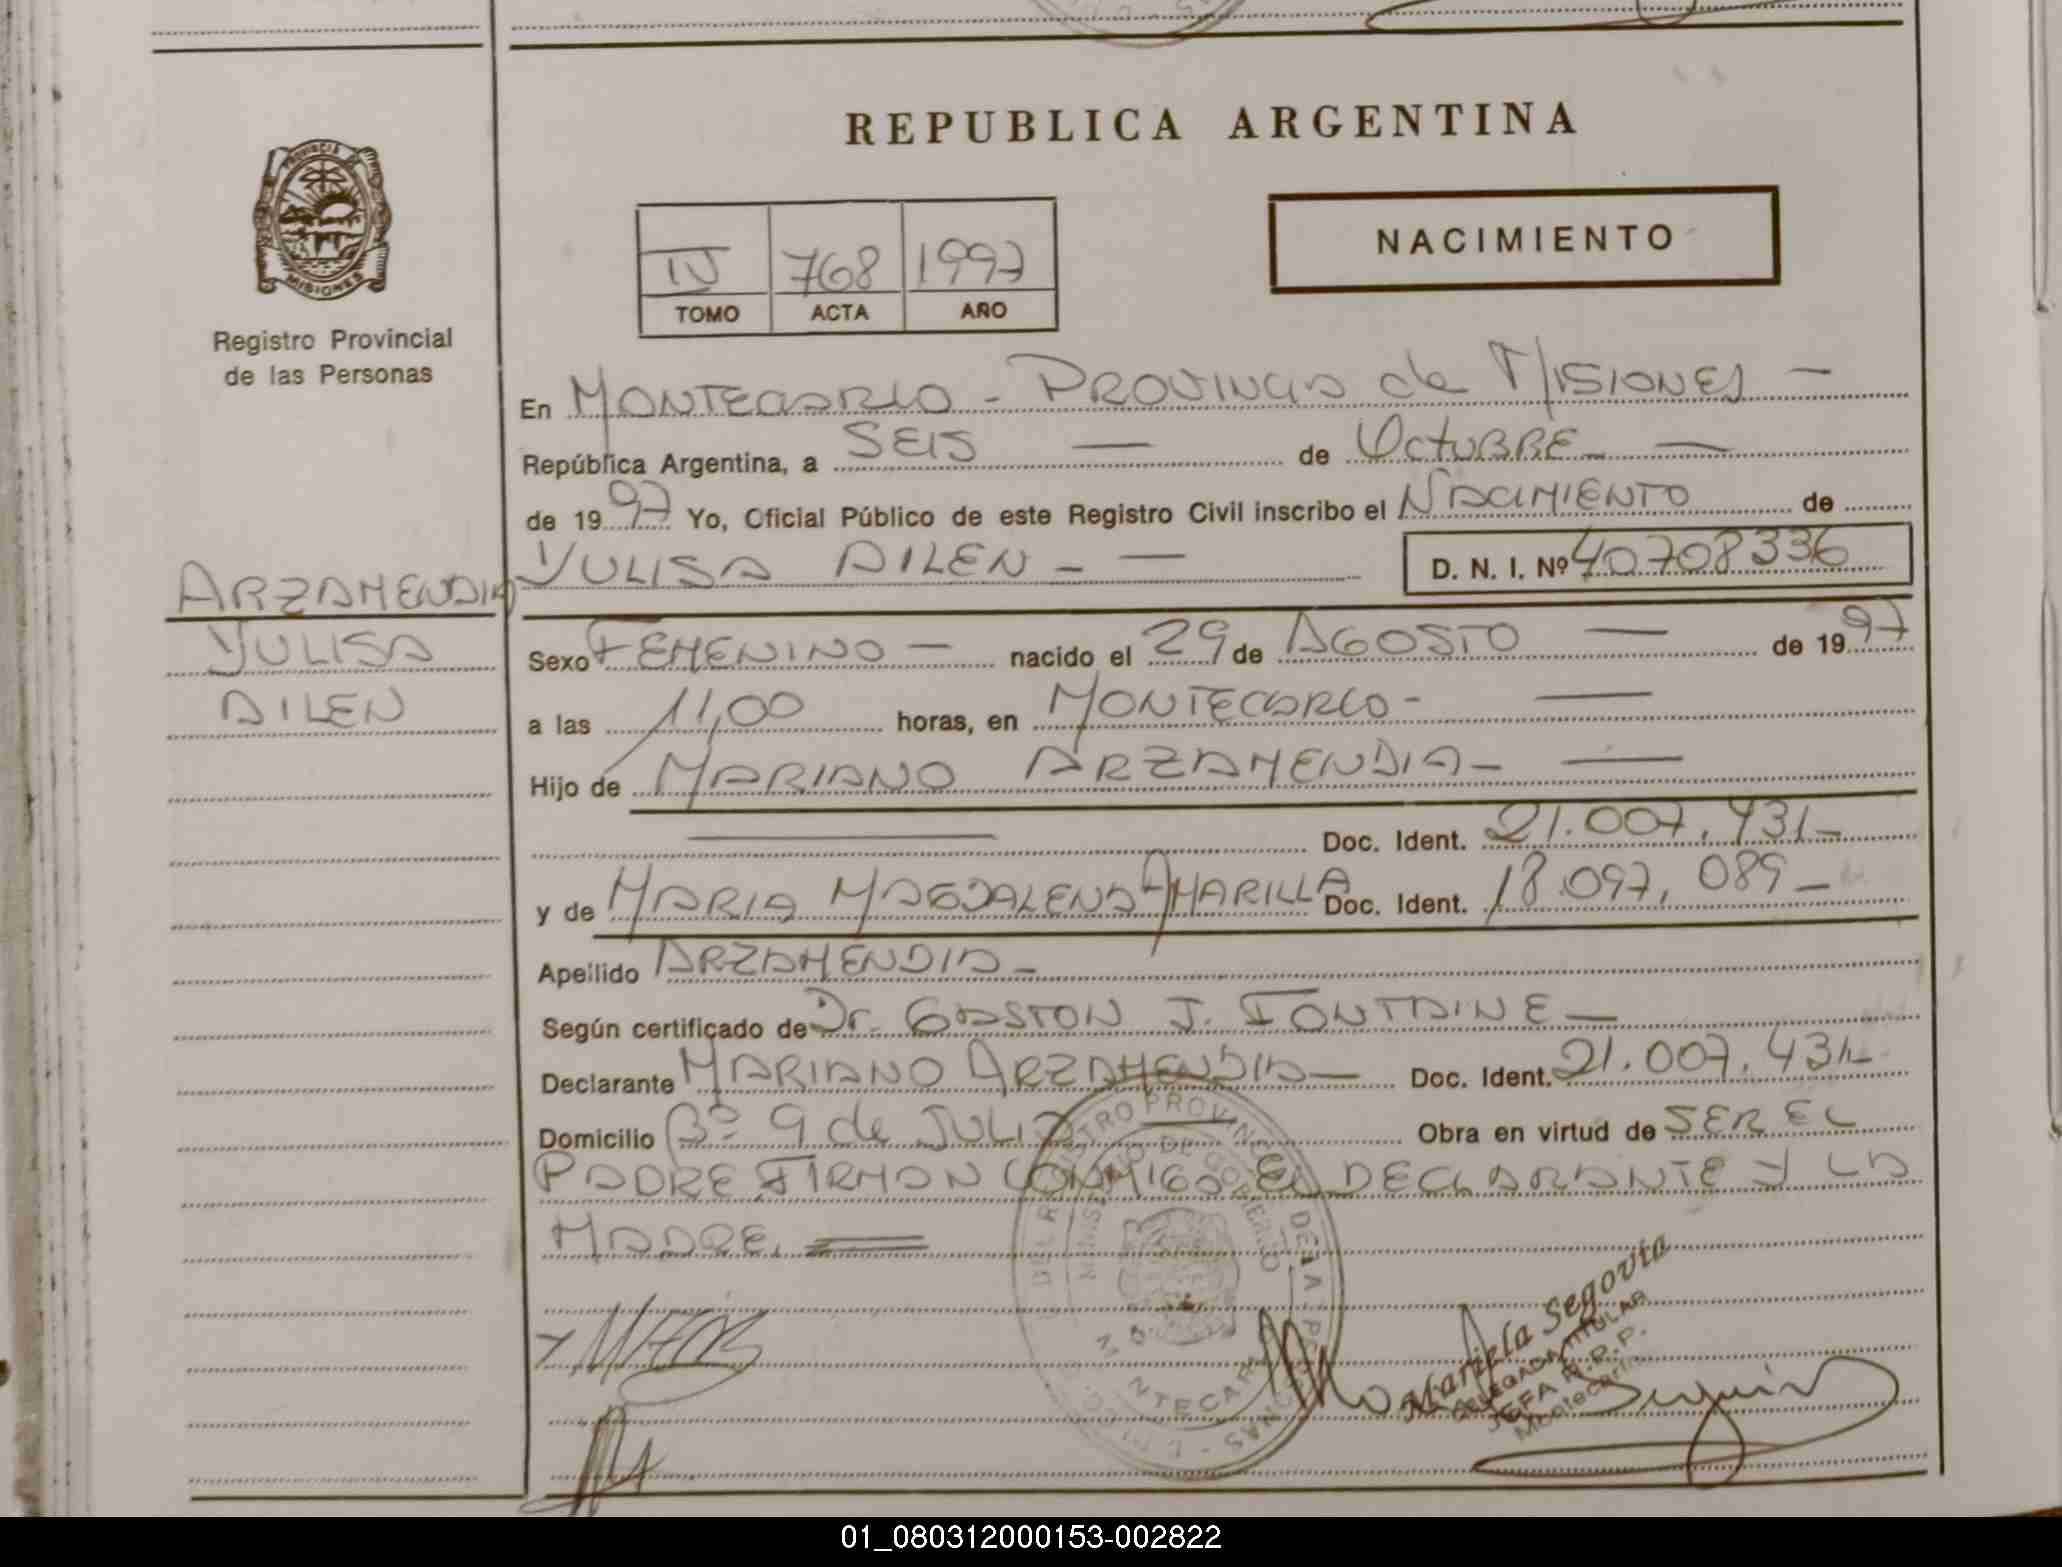 REPUBLICA ARGENTINA
PROVINCIA DE
MISIONES
Registro Provincial
de las Personas
IV 768 1997
TOMO ACTA AÑO
NACIMIENTO
En MONTECARLO - PROVINCIA de MISIONES -
República Argentina, a SEIS — de OCTUBRE - —
de 1997 Yo, Oficial Público de este Registro Civil inscribo el NACIMIENTO de
YULISA AILEN - — D. N. I. Nº 40708336
ARZAMENDIA
YULISA
AILEN
Sexo FEMENINO - nacido el 29 de AGOSTO — de 1997
a las 11,00 horas, en MONTECARLO - —
Hijo de MARIANO ARZAMENDIA - —
— Doc. Ident. 21.007.431 -
y de MARIA MAGDALENA AMARILLA Doc. Ident. 18.097.089 -
Apellido ARZAMENDIA -
Según certificado de Dr. GASTON J. FONTAINE -
Declarante MARIANO ARZAMENDIA — Doc. Ident. 21.007.431 -
Domicilio Bº 9 de JULIO Obra en virtud de SER EL
PADRE FIRMAN CONMIGO EL DECLARANTE Y LA
MADRE. =
Mariela Segovia
DELEGADA TITULAR
JEFA R.P.P.
Montecarlo
01_080312000153-002822